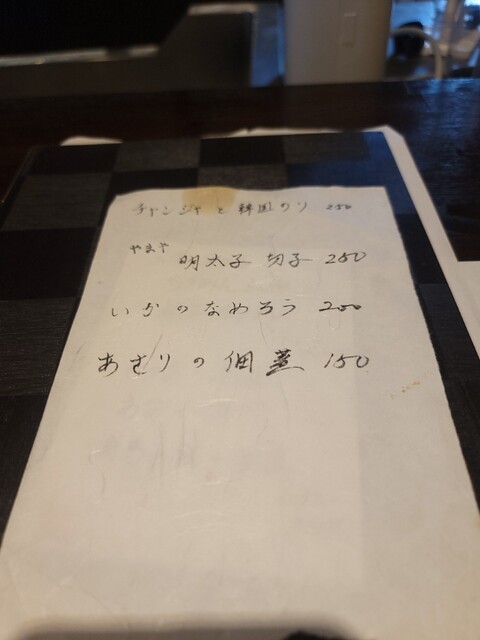 チャンジャと韓国のり 250
やまや
明太子 切子 250
いかのなめろう 200
あさりの佃煮 150